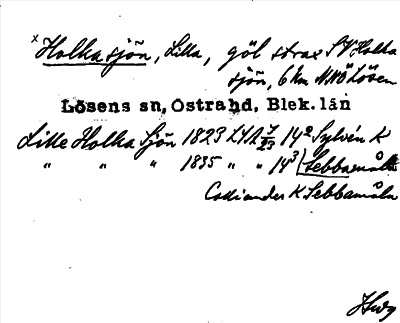 x Holkasjön, Lilla, göl strax SV Holka
sjön, 6 km NNÖ Lösen
Lösens sn, Östra hd, Blek. län
Lille Holka Sjön 1823 LSA 7/23 14² Sylvén K
" " " 1835 " " 14³ Sebbamåla
K Sebbamåla